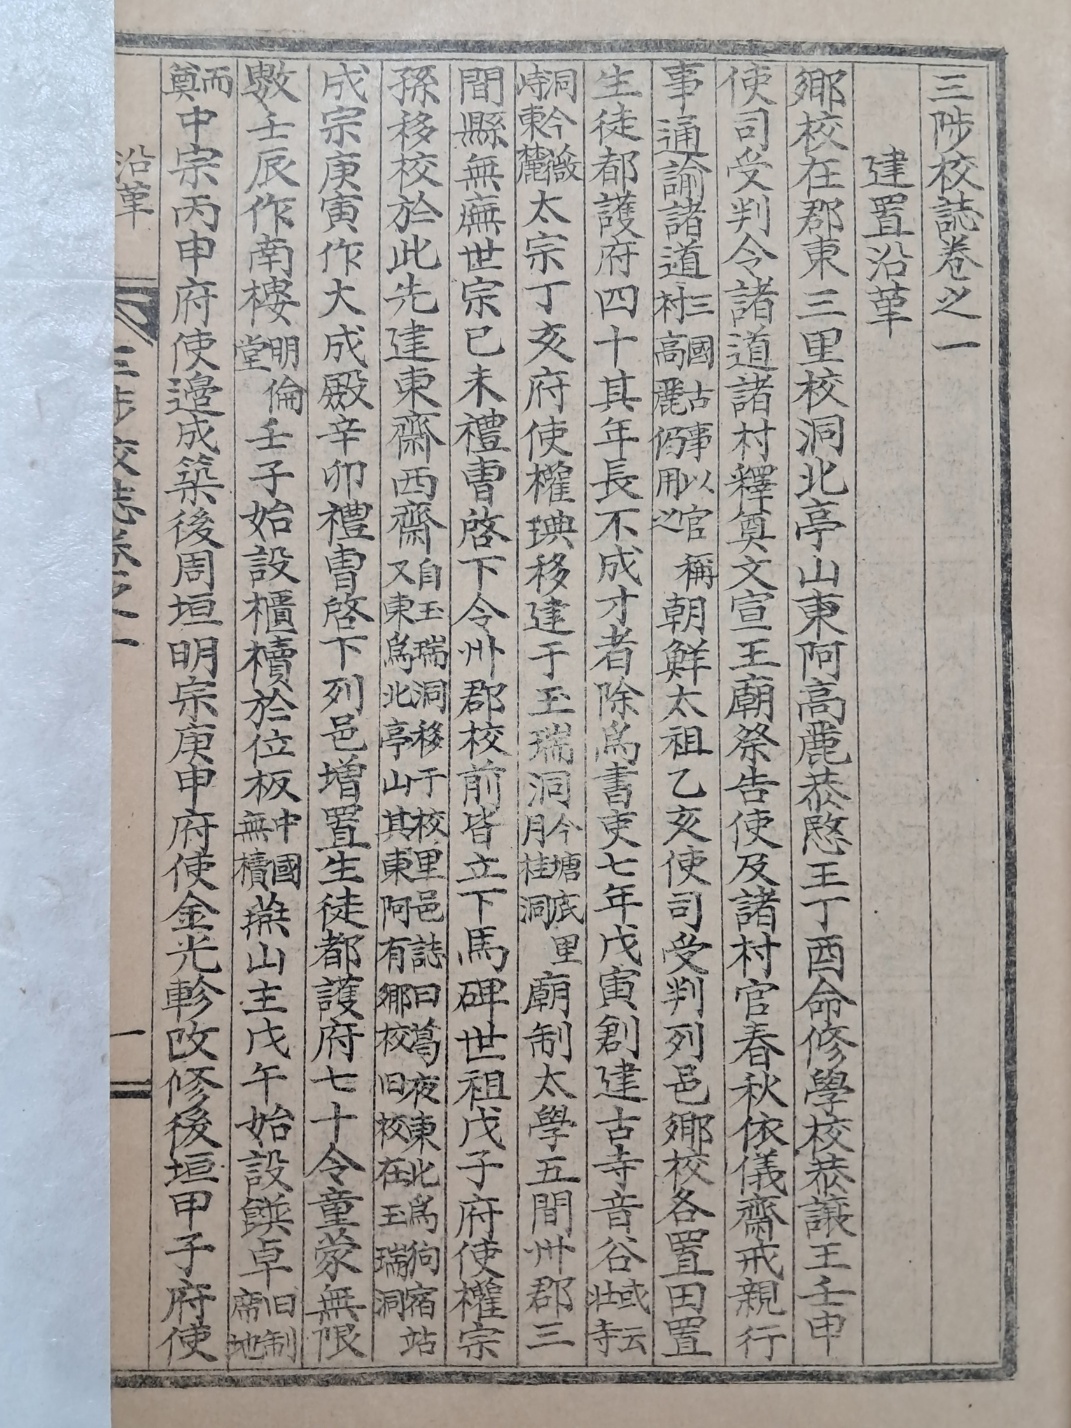 三陟校誌卷之一
建置沿革
鄕校在郡東三里校洞北亭山東阿高麗恭愍王丁酉命修學校恭讓王壬申
使司受判令諸道諸村釋奠文宣王廟祭告使及諸村官春秋依儀齋戒親行
事通諭諸道三國古事以官稱村高麗仍用之朝鮮太祖乙亥使司受判列邑鄕校各置田置
生徒都護府四十其年長不成才者除爲書吏七年戊寅創建古寺音谷或云壯寺
洞今徵時東麓太宗丁亥府使權㙉移建于玉瑞洞今塘底里月桂洞廟制太學五間州郡三
間縣無廡世宗己未禮曹啓下令州郡校前皆立下馬碑世祖戊子府使權宗
孫移校於此先建東齋西齋自玉瑞洞移于校里邑誌曰葛夜東北爲狗宿站又東爲北亭山其東阿有鄕校旧校在玉瑞洞
成宗庚寅作大成殿辛卯禮曹啓下列邑增置生徒都護府七十令童蒙無限
敷壬辰作南樓明倫堂壬子始設櫃櫝於位板中國無櫝燕山主戊午始設饌卓旧制席地
而奠中宗丙申府使邊成築後周垣明宗庚申府使金光軫改修後垣甲子府使
沿革
三陟校誌卷之一
一